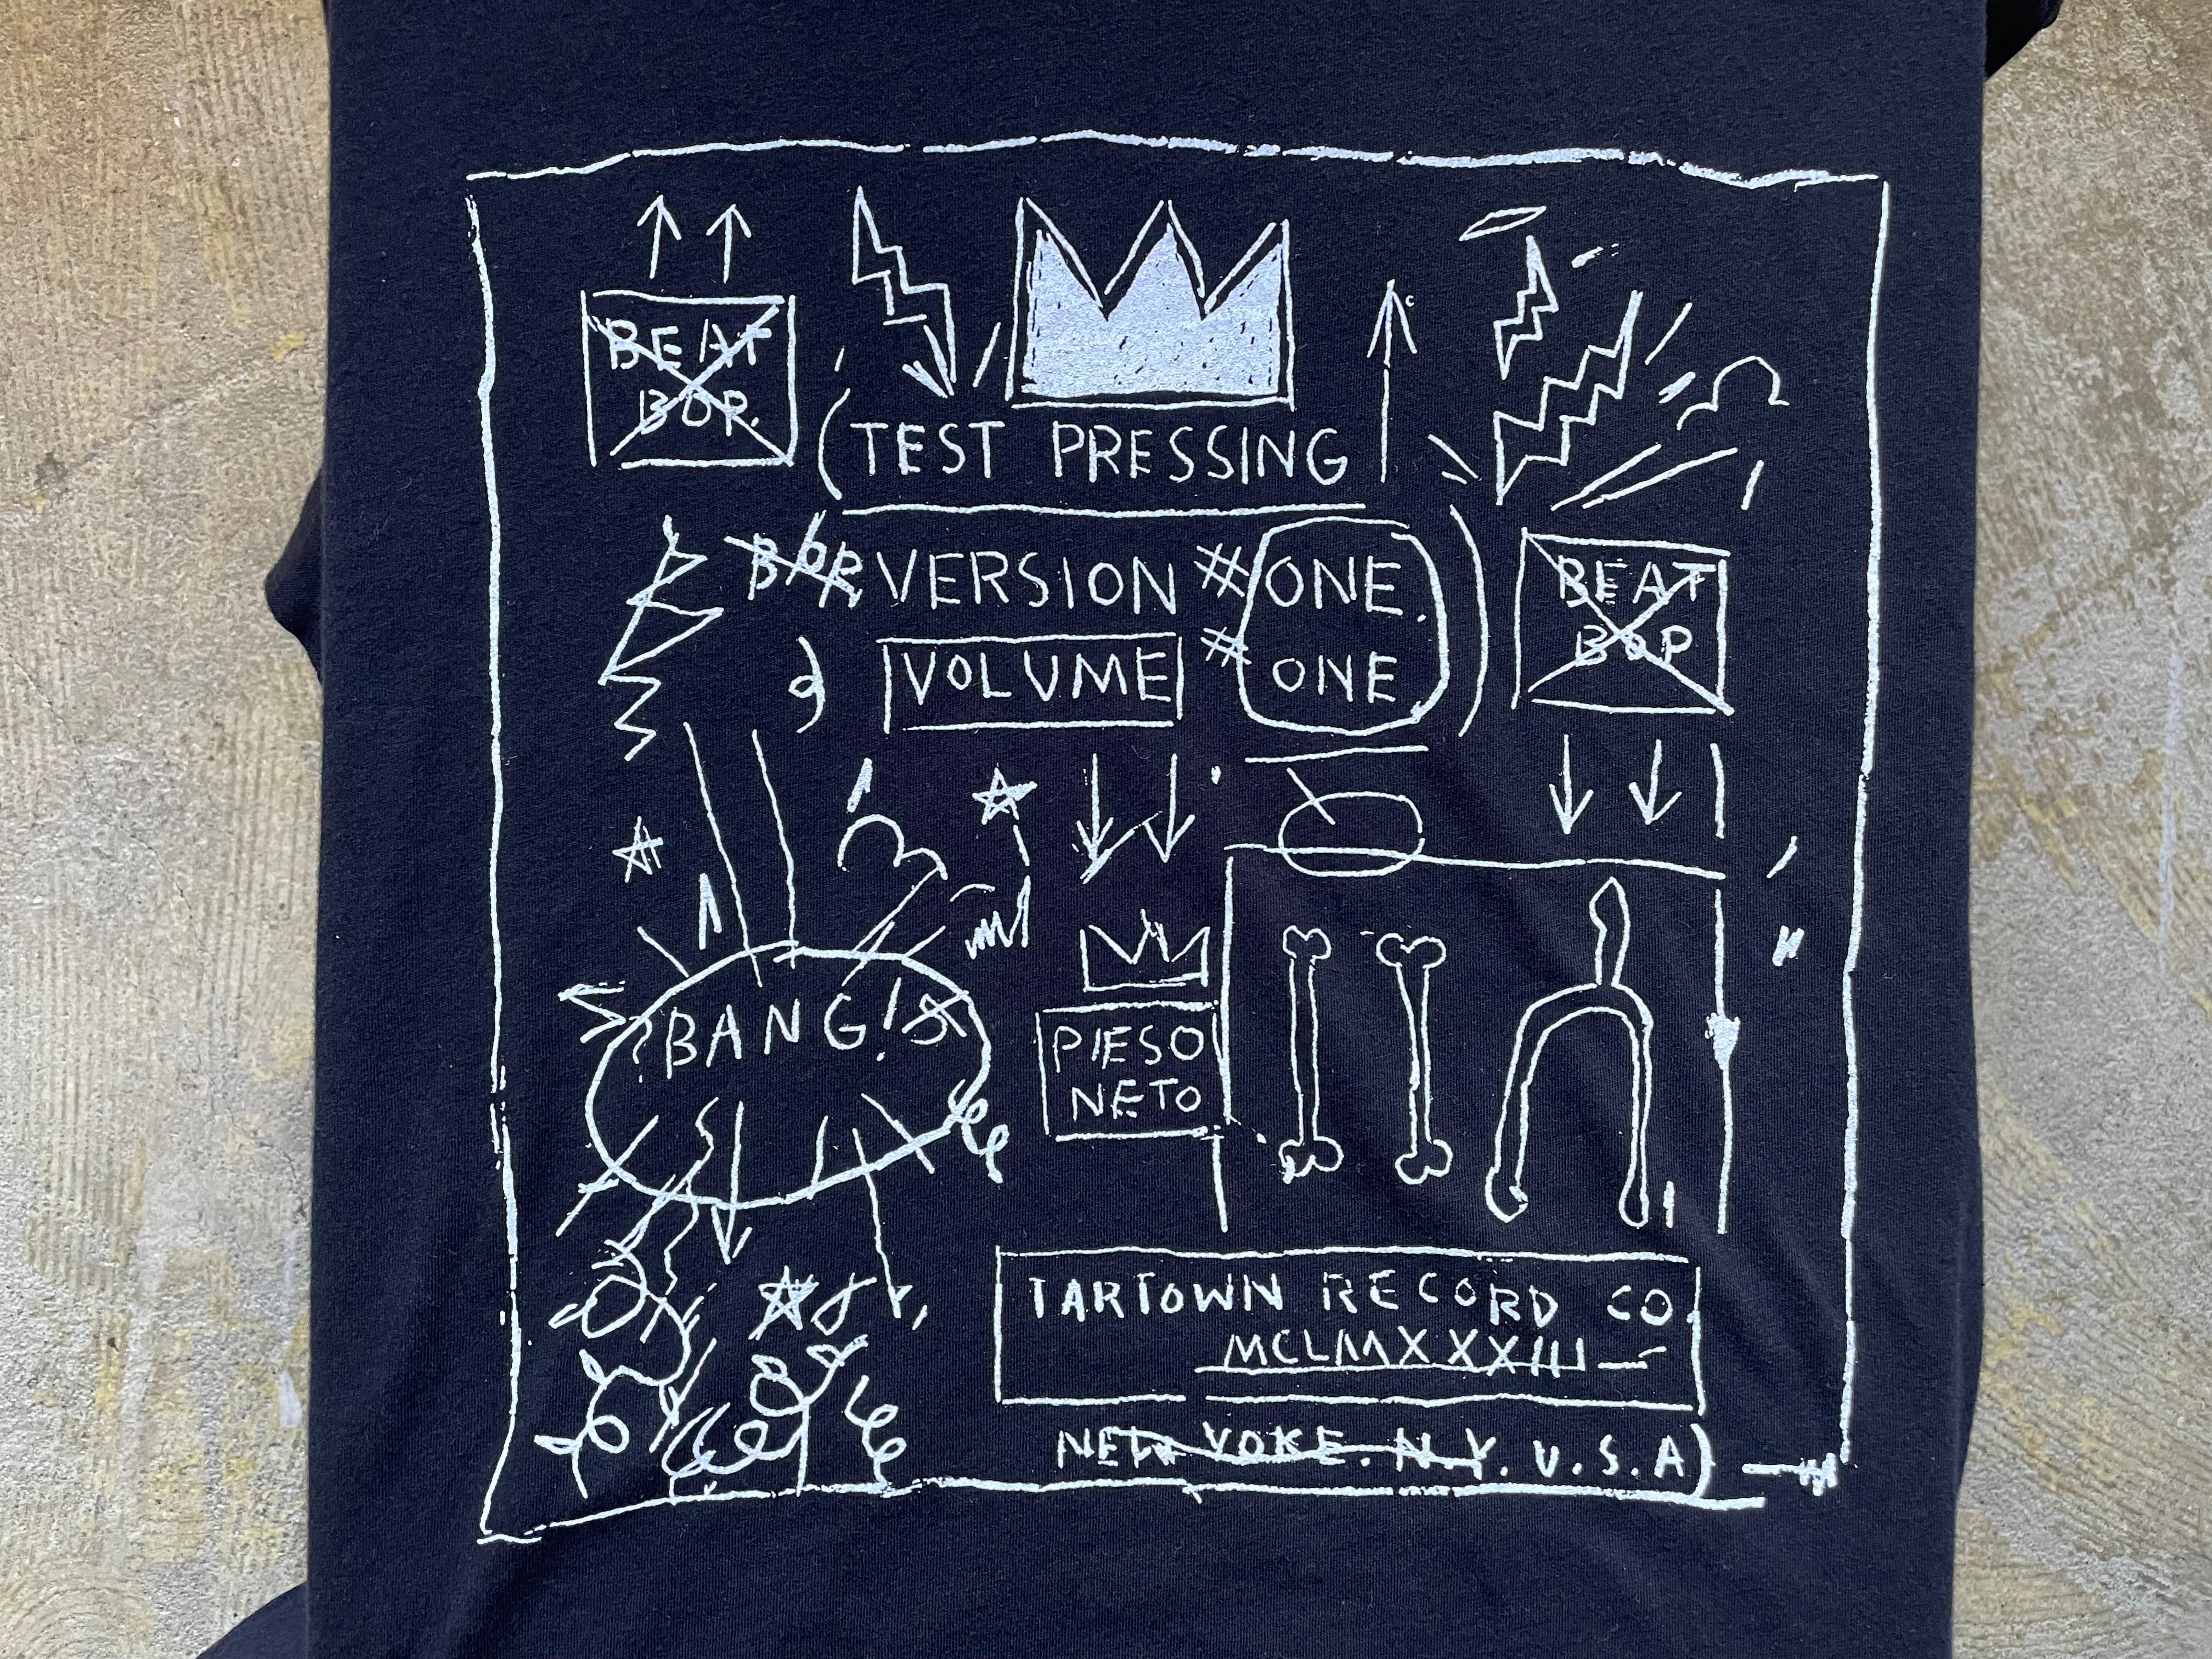 BEAT
BOP.
(TEST PRESSING
BOP VERSION # ONE.
VOLUME # ONE)
BEAT
BOP
BANG!
PIESO
NETO
TARTOWN RECORD CO
MCLMXXXIII
NEW YOKE. N.Y. U.S.A)